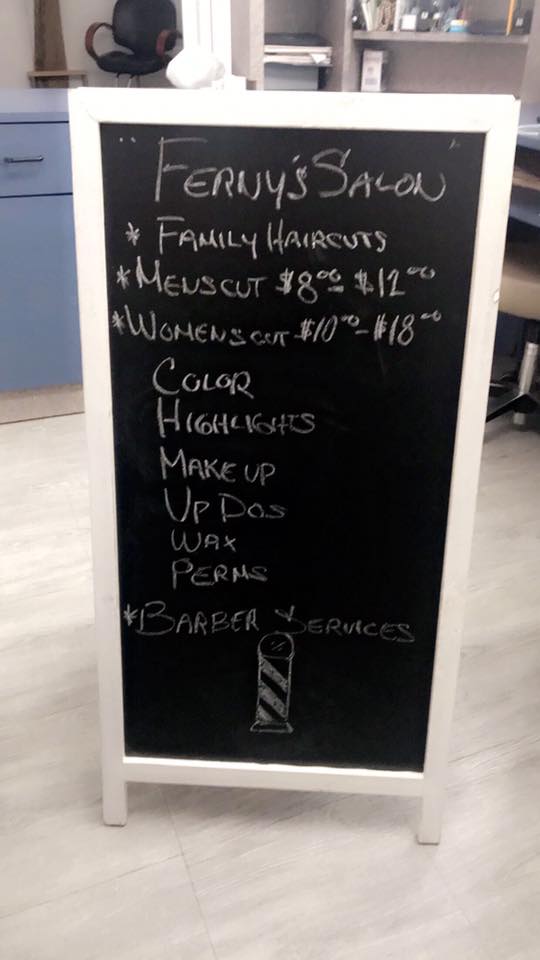 " Ferny's Salon "
* Family Haircuts
* Mens cut $8.00 - $12.00
* Womens cut $10.00 - $18.00
Color
Highlights
Make up
Up Dos
Wax
Perms
* Barber Services